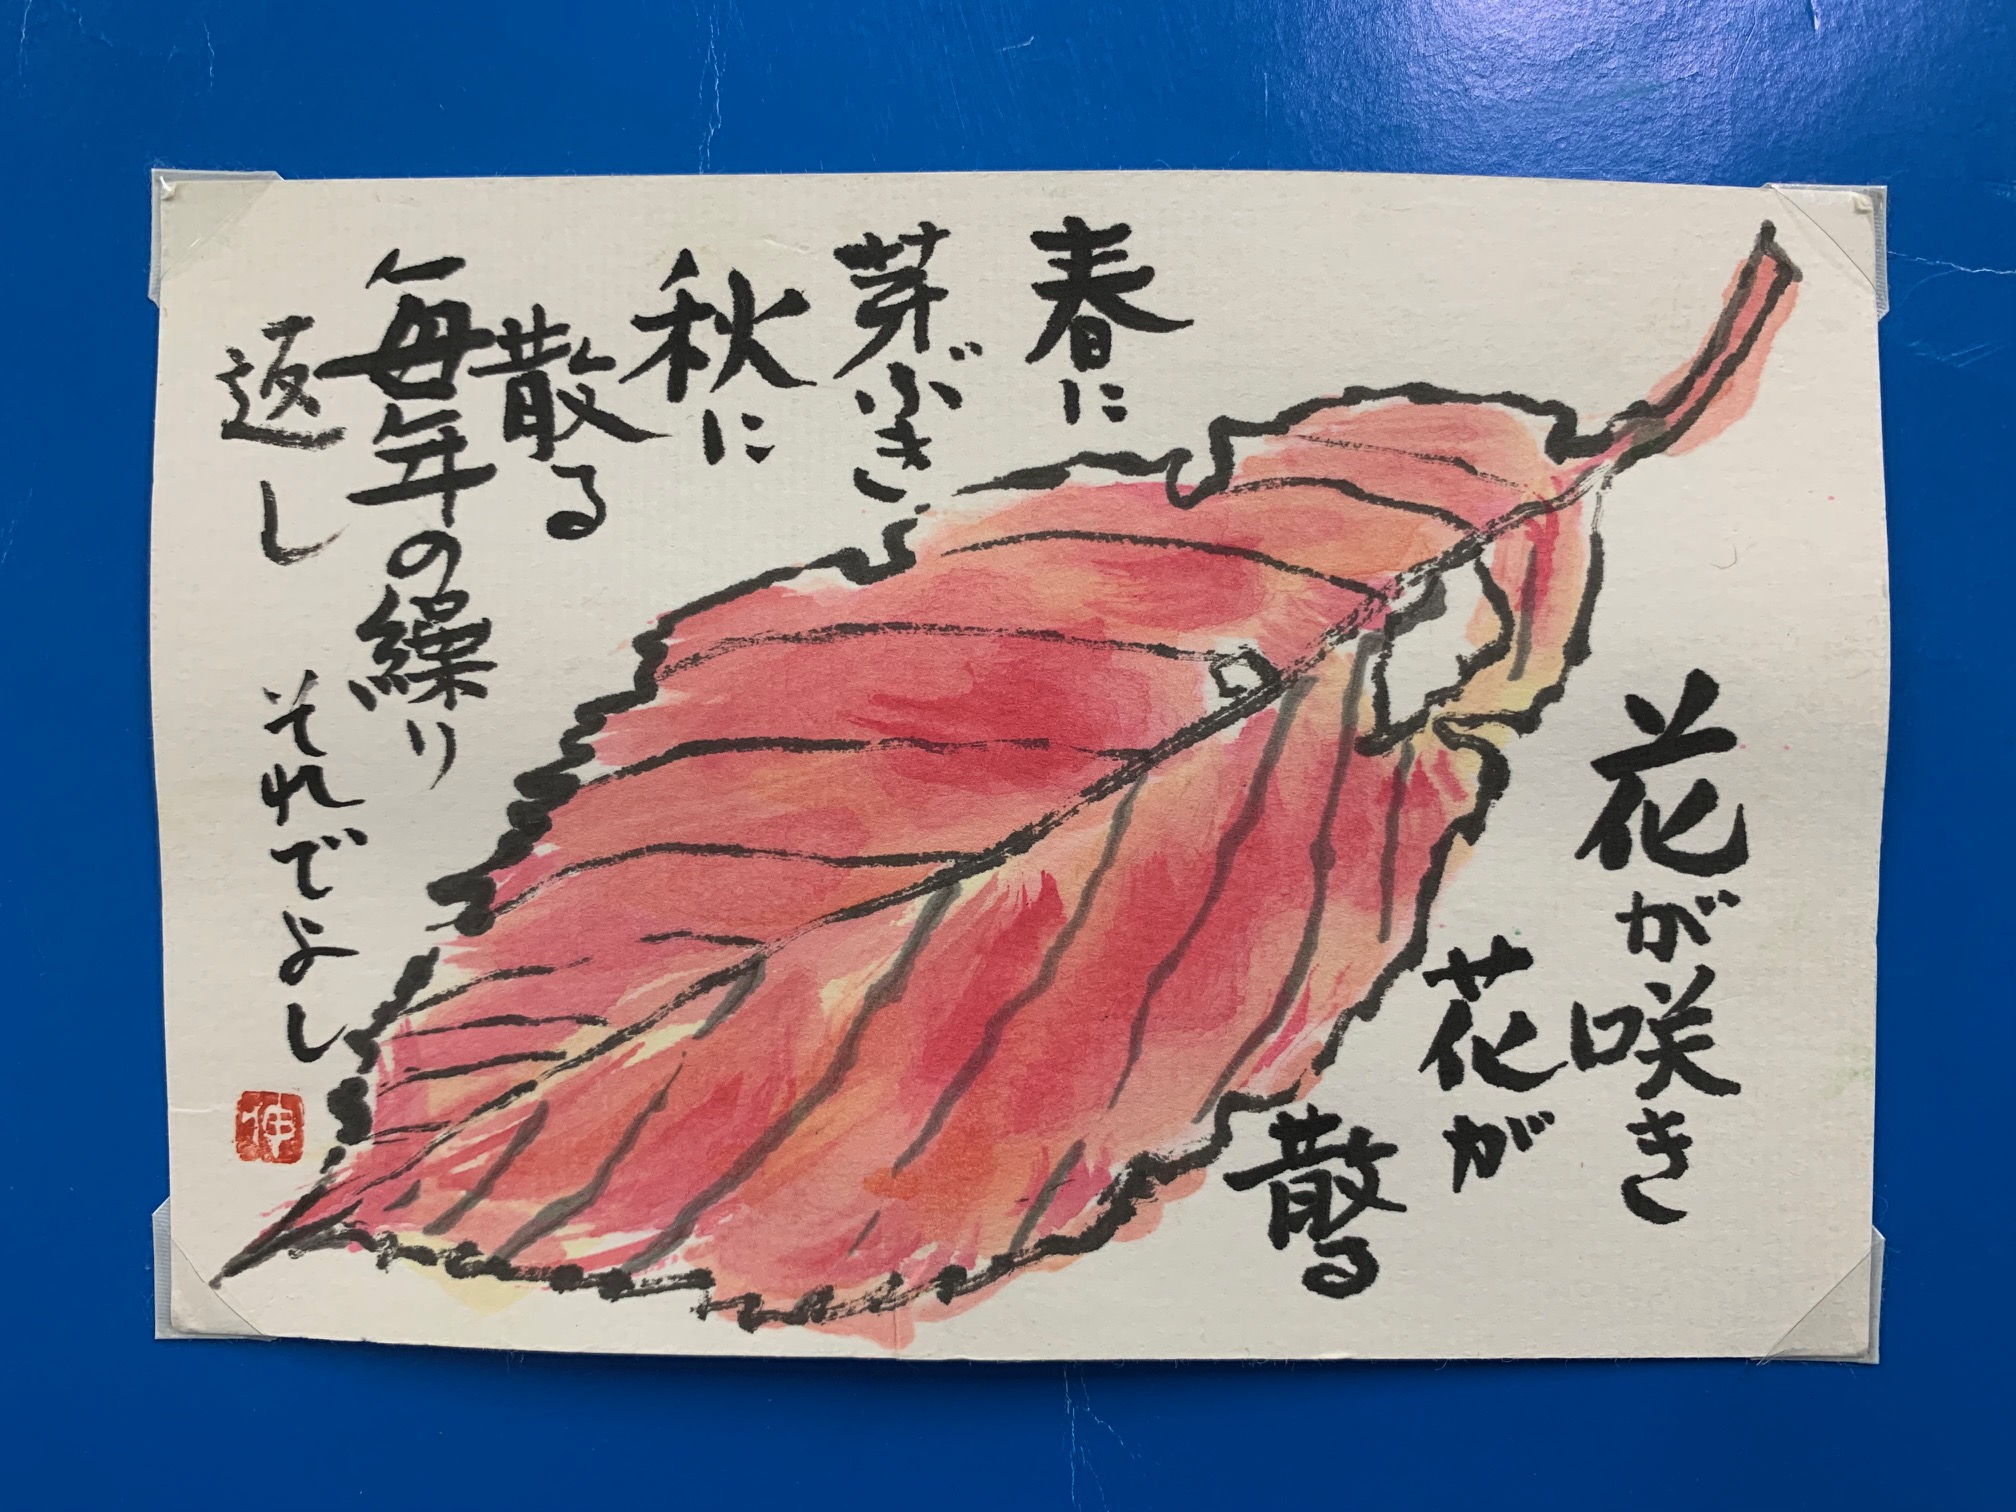 花が咲き
花が
散る
春に
芽ぶき
秋に
散る
毎年の繰り
返し それでよし
伸